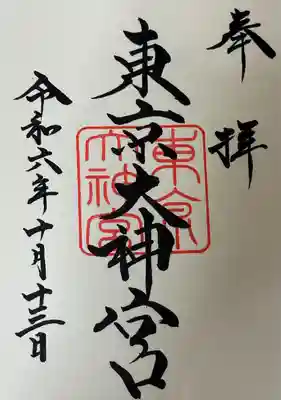 奉拝
東京大神宮
東京大神宮
令和六年十月十三日